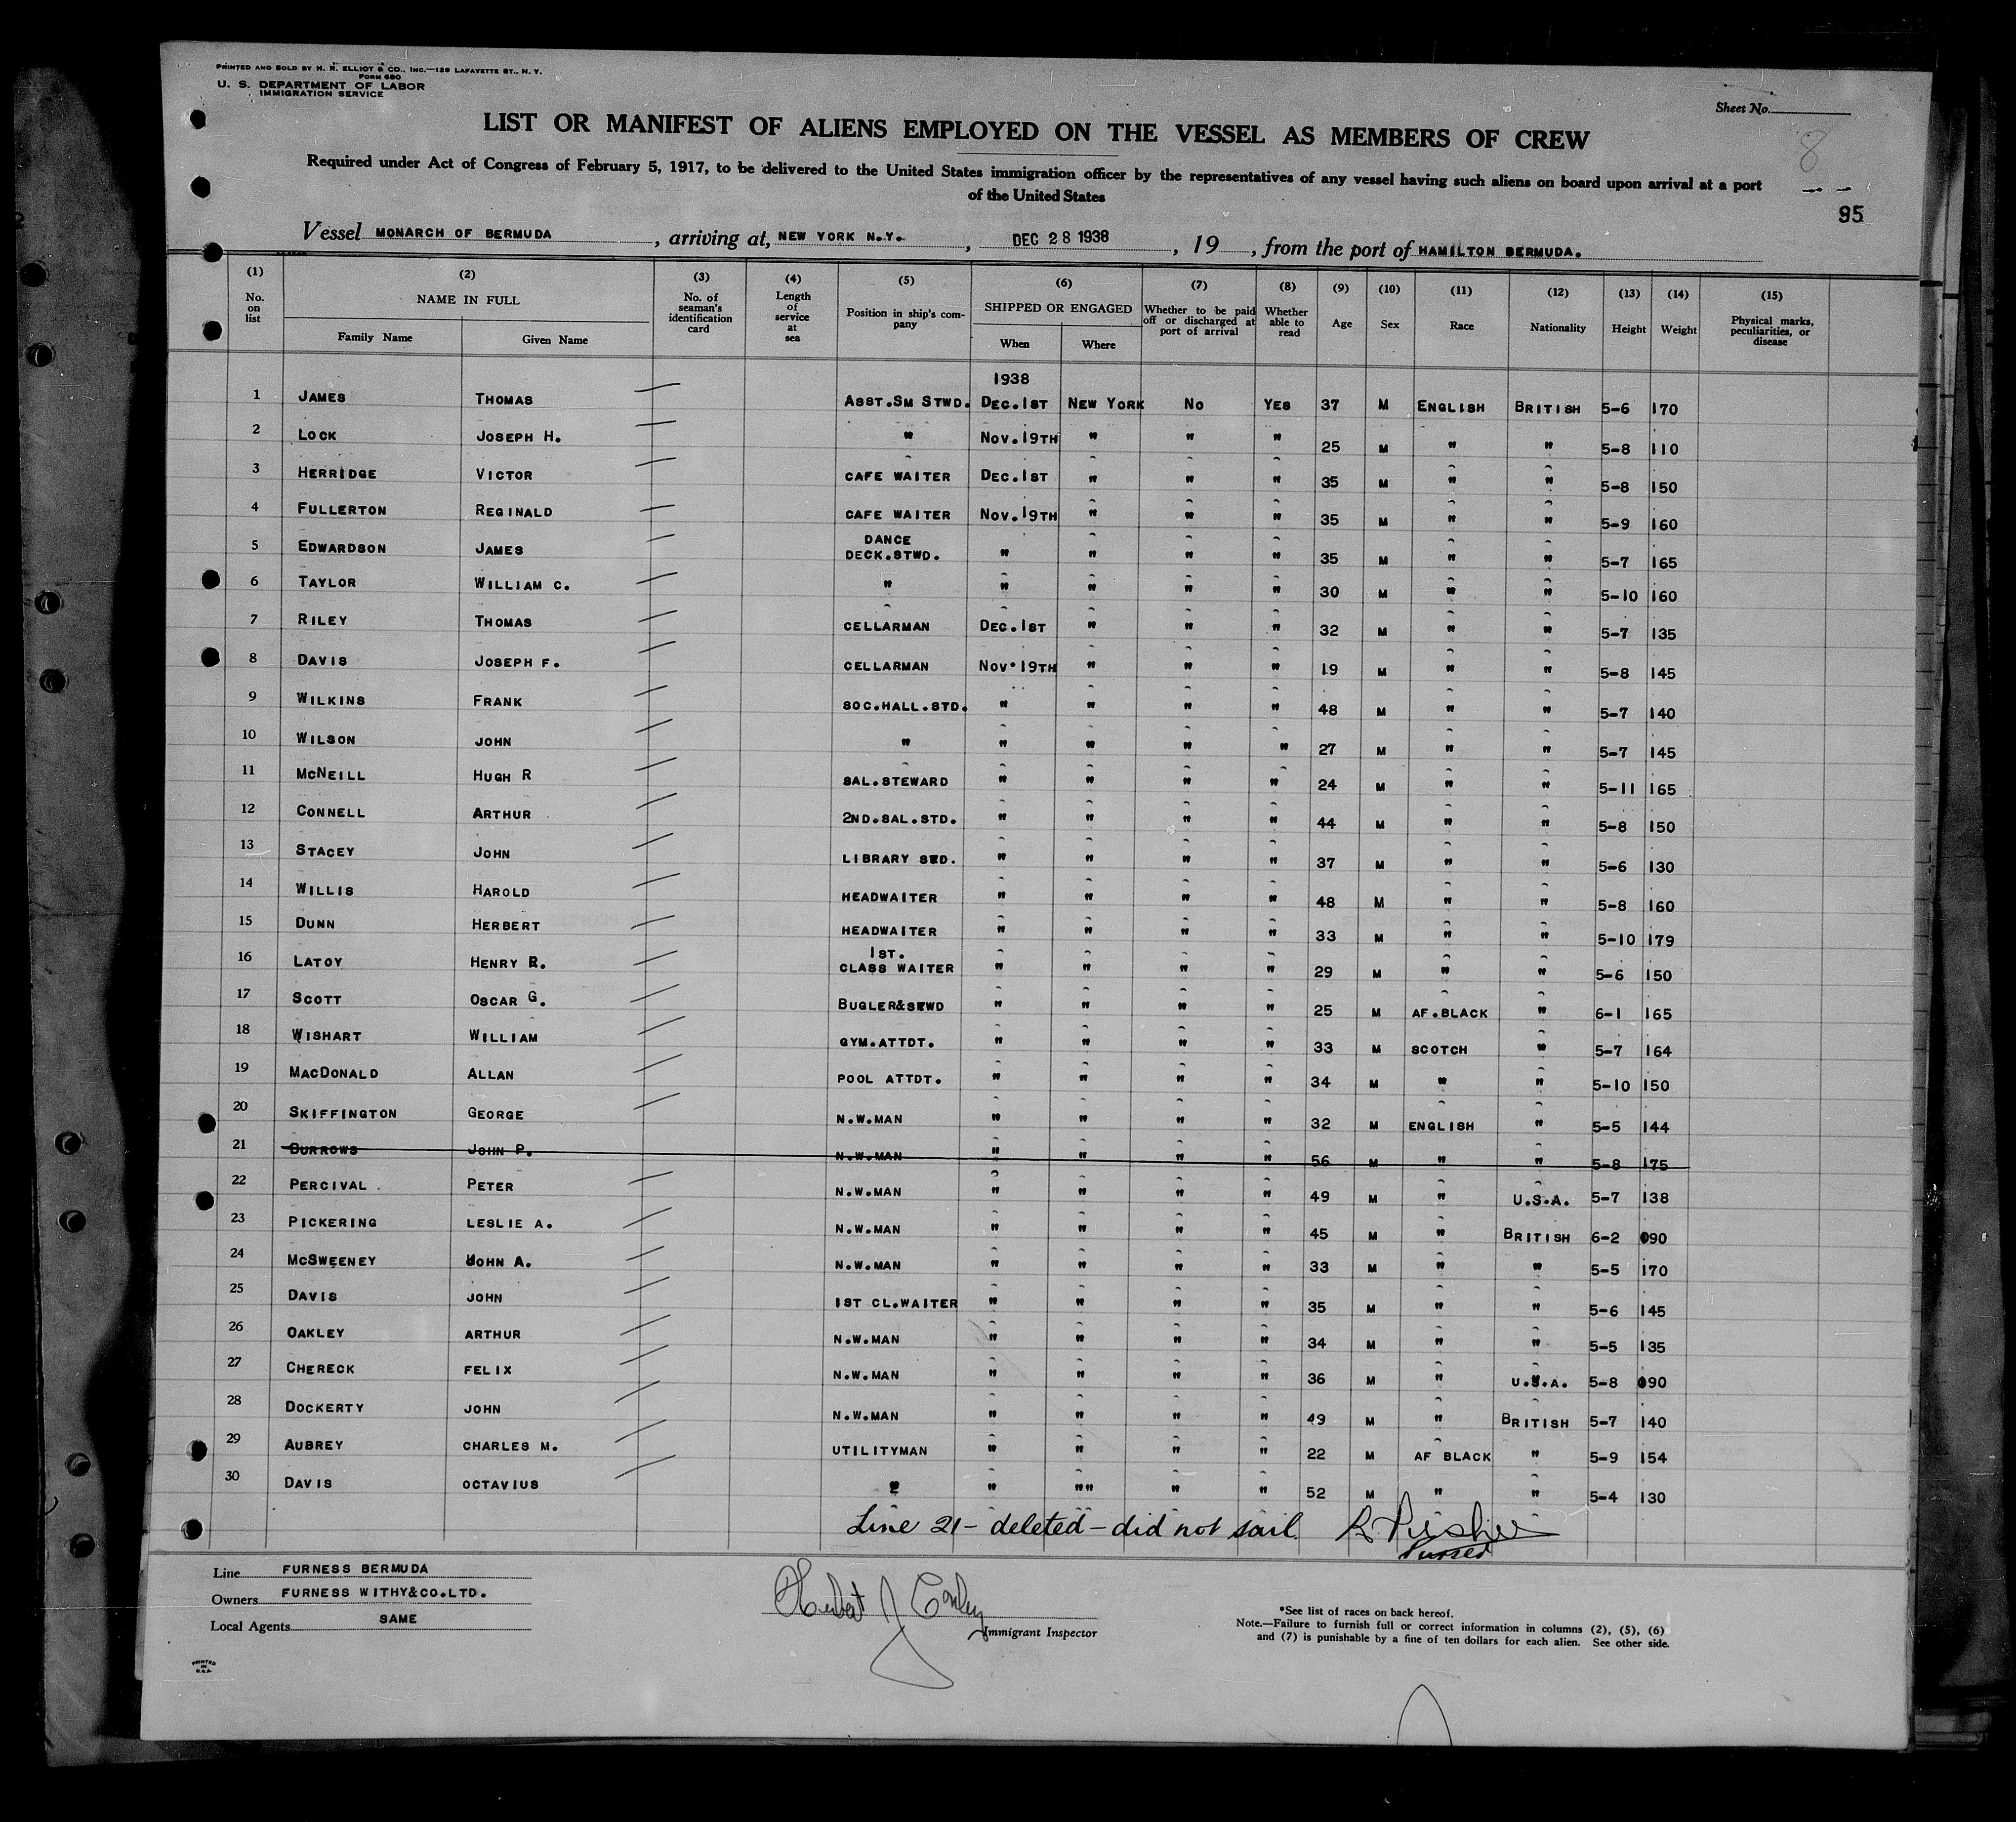 PRINTED AND SOLD BY H. R. ELLIOT & CO., INC.—129 LAFAYETTE ST., N. Y.
FORM 680
U. S. DEPARTMENT OF LABOR
IMMIGRATION SERVICE
Sheet No.
LIST OR MANIFEST OF ALIENS EMPLOYED ON THE VESSEL AS MEMBERS OF CREW
8
Required under Act of Congress of February 5, 1917, to be delivered to the United States immigration officer by the representatives of any vessel having such aliens on board upon arrival at a port
of the United States
95
Vessel MONARCH OF BERMUDA, arriving at, NEW YORK N.Y., DEC 28 1938, 19, from the port of HAMILTON BERMUDA.
(1) (2) (3) (4) (5) (6) (7) (8) (9) (10) (11) (12) (13) (14) (15)
No. on list NAME IN FULL Family Name Given Name No. of seaman's identification card Length of service at sea Position in ship's company SHIPPED OR ENGAGED When Where Whether to be paid off or discharged at port of arrival Whether able to read Age Sex Race Nationality Height Weight Physical marks, peculiarities, or disease
1938
1 JAMES THOMAS ASST.SM STWD. DEC.1ST NEW YORK NO YES 37 M ENGLISH BRITISH 5-6 170
2 LOCK JOSEPH H. " NOV.19TH " " " 25 M " " 5-8 110
3 HERRIDGE VICTOR CAFE WAITER DEC.1ST " " " 35 M " " 5-8 150
4 FULLERTON REGINALD CAFE WAITER NOV.19TH " " " 35 M " " 5-9 160
5 EDWARDSON JAMES DANCE DECK.STWD. " " " " 35 M " " 5-7 165
6 TAYLOR WILLIAM C. " " " " " 30 M " " 5-10 160
7 RILEY THOMAS CELLARMAN DEC.1ST " " " 32 M " " 5-7 135
8 DAVIS JOSEPH F. CELLARMAN NOV.19TH " " " 19 M " " 5-8 145
9 WILKINS FRANK SOC.HALL.STD. " " " " 48 M " " 5-7 140
10 WILSON JOHN " " " " " 27 M " " 5-7 145
11 MCNEILL HUGH R SAL.STEWARD " " " " 24 M " " 5-11 165
12 CONNELL ARTHUR 2ND.SAL.STD. " " " " 44 M " " 5-8 150
13 STACEY JOHN LIBRARY STD. " " " " 37 M " " 5-6 130
14 WILLIS HAROLD HEADWAITER " " " " 48 M " " 5-8 160
15 DUNN HERBERT HEADWAITER " " " " 33 M " " 5-10 179
16 LATOY HENRY R. 1ST. CLASS WAITER " " " " 29 M " " 5-6 150
17 SCOTT OSCAR G. BUGLER&STWD " " " " 25 M AF.BLACK " 6-1 165
18 WISHART WILLIAM GYM.ATTDT. " " " " 33 M SCOTCH " 5-7 164
19 MACDONALD ALLAN POOL ATTDT. " " " " 34 M " " 5-10 150
20 SKIFFINGTON GEORGE N.W.MAN " " " " 32 M ENGLISH " 5-5 144
21 BURROWS JOHN P. N.W.MAN " " " " 56 M " " 5-8 175
22 PERCIVAL PETER N.W.MAN " " " " 49 M " U.S.A. 5-7 138
23 PICKERING LESLIE A. N.W.MAN " " " " 45 M " BRITISH 6-2 090
24 MCSWEENEY JOHN A. N.W.MAN " " " " 33 M " " 5-5 170
25 DAVIS JOHN 1ST CL.WAITER " " " " 35 M " " 5-6 145
26 OAKLEY ARTHUR N.W.MAN " " " " 34 M " " 5-5 135
27 CHERECK FELIX N.W.MAN " " " " 36 M " U.S.A. 5-8 090
28 DOCKERTY JOHN N.W.MAN " " " " 49 M " BRITISH 5-7 140
29 AUBREY CHARLES M. UTILITYMAN " " " " 22 M AF BLACK " 5-9 154
30 DAVIS OCTAVIUS " " "" " " 52 M " " 5-4 130
Line 21 - deleted - did not sail
Purser
Line FURNESS BERMUDA
Owners FURNESS WITHY&CO.LTD.
Local Agents SAME
Immigrant Inspector
*See list of races on back hereof.
Note.—Failure to furnish full or correct information in columns (2), (5), (6)
and (7) is punishable by a fine of ten dollars for each alien. See other side.
PRINTED
IN
U.S.A.